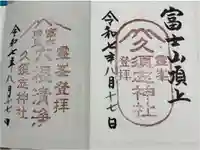 富士山頂上
登拝
霊峯
久須志神社
令和七年八月十七日
霊峯登拝
六根清浄
久須志神社
令和七年八月十七日